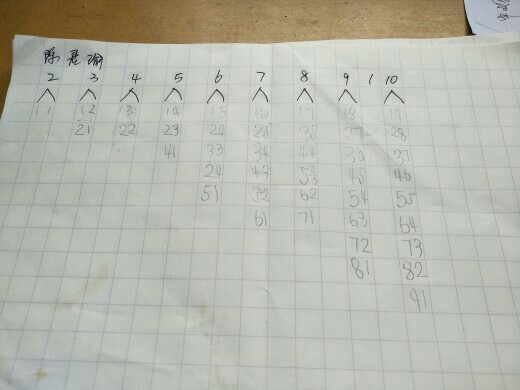 2 3 4 5 6 7 8 9 10
11 12 13 14 15 16 17 18 19
21 22 23 24 25 27 28
33 34 44 36 37
24 43 53 46
51 52 62 54 55
61 71 63 64
72 73
81 82
91